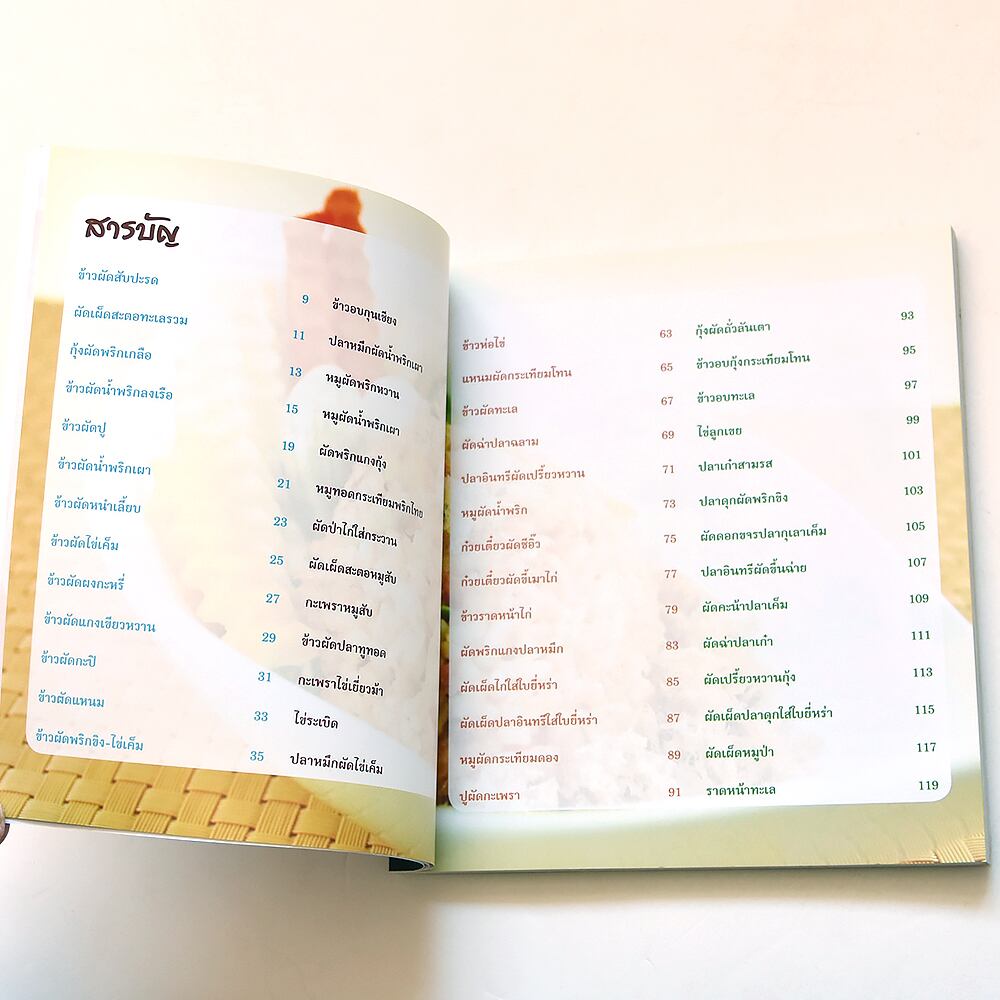 สารบัญ
ข้าวผัดสับปะรด 9
ผัดเผ็ดสะตอทะเลรวม 11
กุ้งผัดพริกเกลือ 13
ข้าวผัดน้ำพริกลงเรือ 15
ข้าวผัดปู 19
ข้าวผัดน้ำพริกเผา 21
ข้าวผัดหนำเลี้ยบ 23
ข้าวผัดไข่เค็ม 25
ข้าวผัดผงกะหรี่ 27
ข้าวผัดแกงเขียวหวาน 29
ข้าวผัดกะปิ 31
ข้าวผัดแหนม 33
ข้าวผัดพริกขิง-ไข่เค็ม 35
ข้าวอบกุนเชียง
ปลาหมึกผัดน้ำพริกเผา
หมูผัดพริกหวาน
หมูผัดน้ำพริกเผา
ผัดพริกแกงกุ้ง
หมูทอดกระเทียมพริกไทย
ผัดป่าไก่ใส่กระวาน
ผัดเผ็ดสะตอหมูสับ
กะเพราหมูสับ
ข้าวผัดปลาทูทอด
กะเพราไข่เยี่ยวม้า
ไข่ระเบิด
ปลาหมึกผัดไข่เค็ม
ข้าวห่อไข่ 63
แหนมผัดกระเทียมโทน 65
ข้าวผัดทะเล 67
ผัดฉ่าปลาฉลาม 69
ปลาอินทรีผัดเปรี้ยวหวาน 71
หมูผัดน้ำพริก 73
ก๋วยเตี๋ยวผัดซีอิ๊ว 75
ก๋วยเตี๋ยวผัดขี้เมาไก่ 77
ข้าวราดหน้าไก่ 79
ผัดพริกแกงปลาหมึก 83
ผัดเผ็ดไก่ใส่ใบยี่หร่า 85
ผัดเผ็ดปลาอินทรีใส่ใบยี่หร่า 87
หมูผัดกระเทียมดอง 89
ปูผัดกะเพรา 91
กุ้งผัดถั่วลันเตา 93
ข้าวอบกุ้งกระเทียมโทน 95
ข้าวอบทะเล 97
ไข่ลูกเขย 99
ปลาเก๋าสามรส 101
ปลาดุกผัดพริกขิง 103
ผัดดอกขจรปลากุเลาเค็ม 105
ปลาอินทรีผัดขึ้นฉ่าย 107
ผัดคะน้าปลาเค็ม 109
ผัดฉ่าปลาเก๋า 111
ผัดเปรี้ยวหวานกุ้ง 113
ผัดเผ็ดปลาดุกใส่ใบยี่หร่า 115
ผัดเผ็ดหมูป่า 117
ราดหน้าทะเล 119